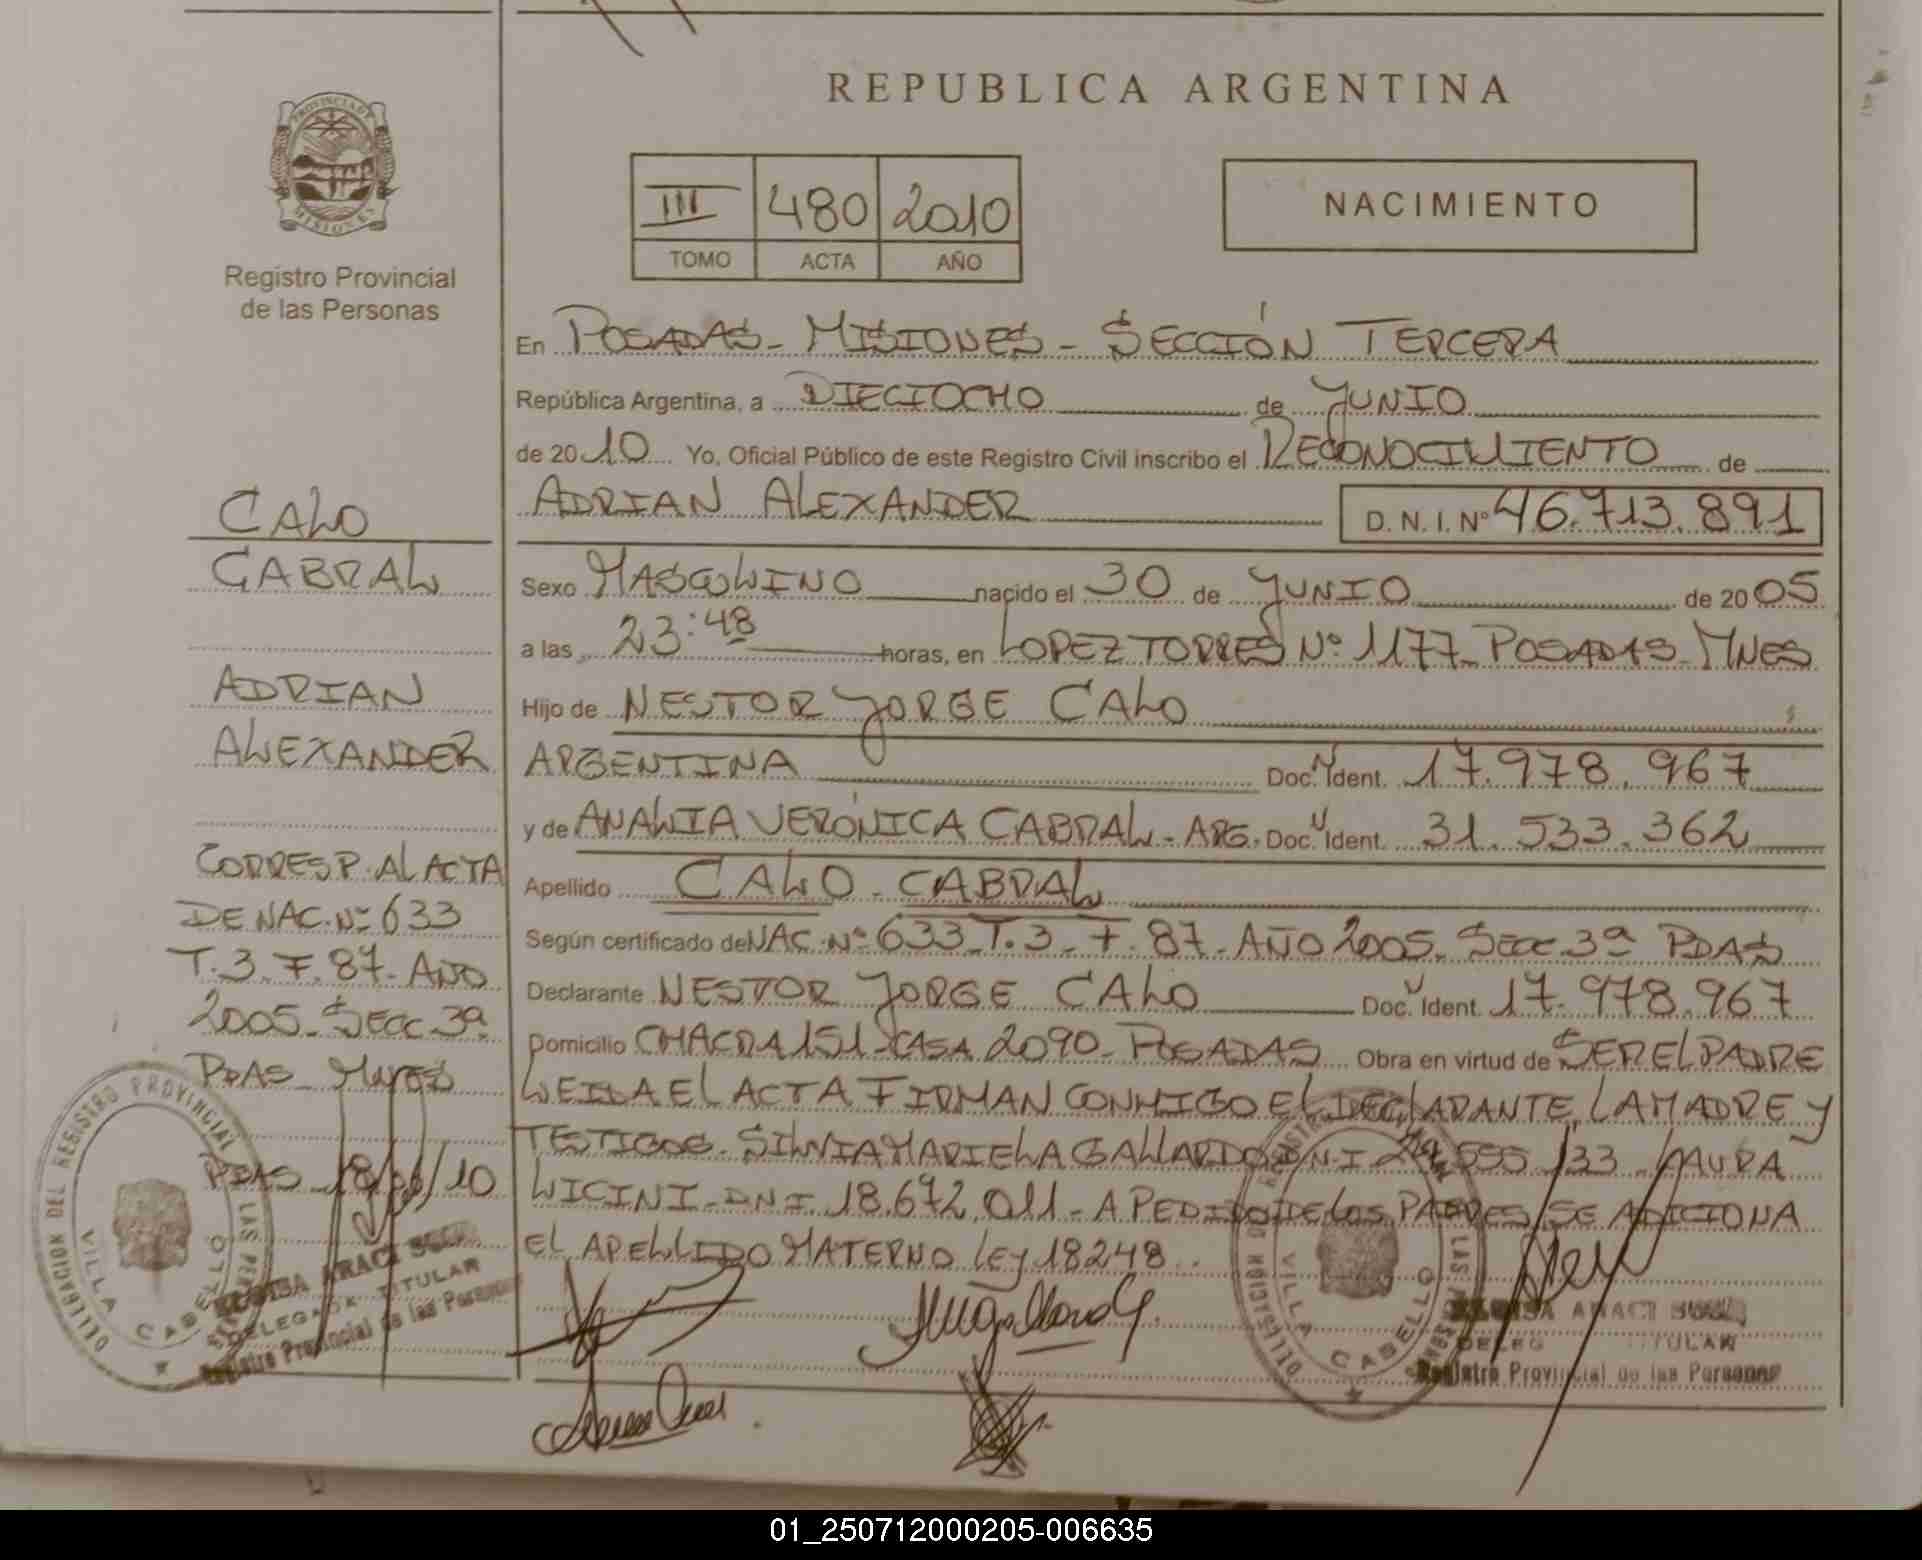 PROVINCIA DE
MISIONES
Registro Provincial
de las Personas
CALO
CABRAL
ADRIAN
ALEXANDER
CORRESP. AL ACTA
DE NAC. Nº 633
T. 3. F. 87. AÑO
2005. SECC. 3ª
PDAS _ Mnes
PDAS _ 18/06/10
DELEGACION DEL REGISTRO PROVINCIAL
VILLA CABELLO
ARACI
DELEGADA TITULAR
Registro Provincial de las Personas
REPUBLICA ARGENTINA
III 480 2010
TOMO ACTA AÑO
NACIMIENTO
En POSADAS - MISIONES - SECCIÓN TERCERA
República Argentina, a DIECIOCHO de JUNIO
de 2010 Yo, Oficial Público de este Registro Civil inscribo el RECONOCIMIENTO de
ADRIAN ALEXANDER D. N. I. Nº 46.713.891
Sexo MASCULINO nacido el 30 de JUNIO de 2005
a las 23:48 horas, en LOPEZ TORRES Nº 1177 - POSADAS - MNES
Hijo de NESTOR JORGE CALO
ARGENTINA Doc. Ident. 17.978.967
y de ANALIA VERÓNICA CABRAL - ARG. Doc. Ident. 31.533.362
Apellido CALO - CABRAL
Según certificado de NAC. Nº 633 T. 3 - F. 87 - AÑO 2005. SECC 3ª PDAS
Declarante NESTOR JORGE CALO Doc. Ident. 17.978.967
Domicilio CHACRA 151 - CASA 2090 - POSADAS Obra en virtud de SER EL PADRE
LEIDA EL ACTA FIRMAN CONMIGO EL DECLARANTE, LA MADRE y
TESTIGOS. SILVIA MARIELA GALLARDO DNI - LAURA
LICINI - DNI. 18.672.011 - A PEDIDO DE LOS PADRES SE ADICIONA
EL APELLIDO MATERNO LEY 18248.
VILLA CABELLO
ARACI
TITULAR
Registro Provincial de las Personas
01_250712000205-006635